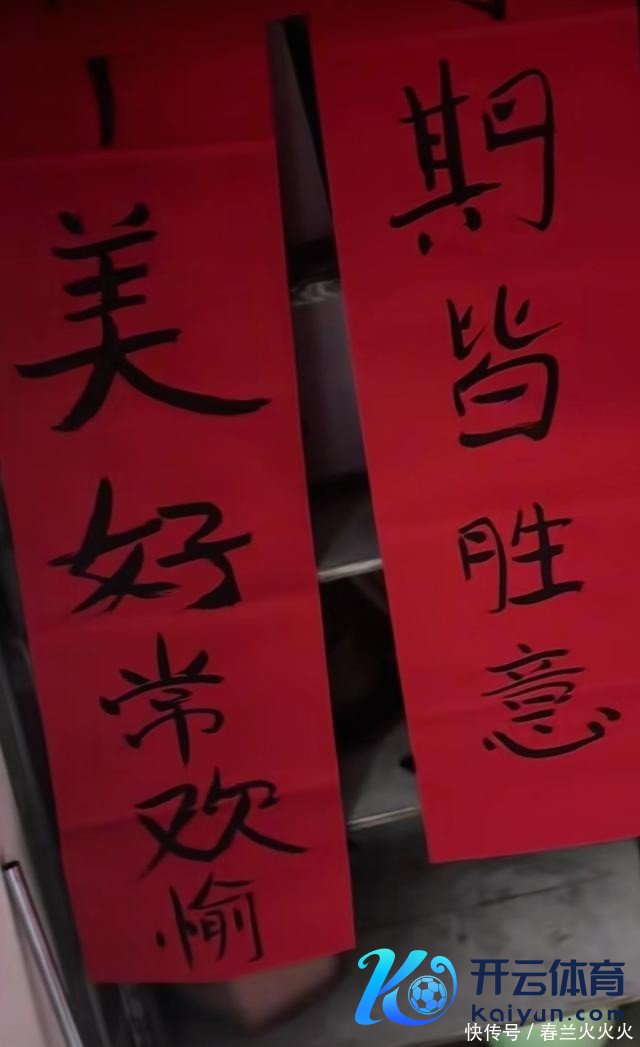 期皆胜意
美好常欢愉
开云体育
kaiyun.com
快传号/春兰火火火